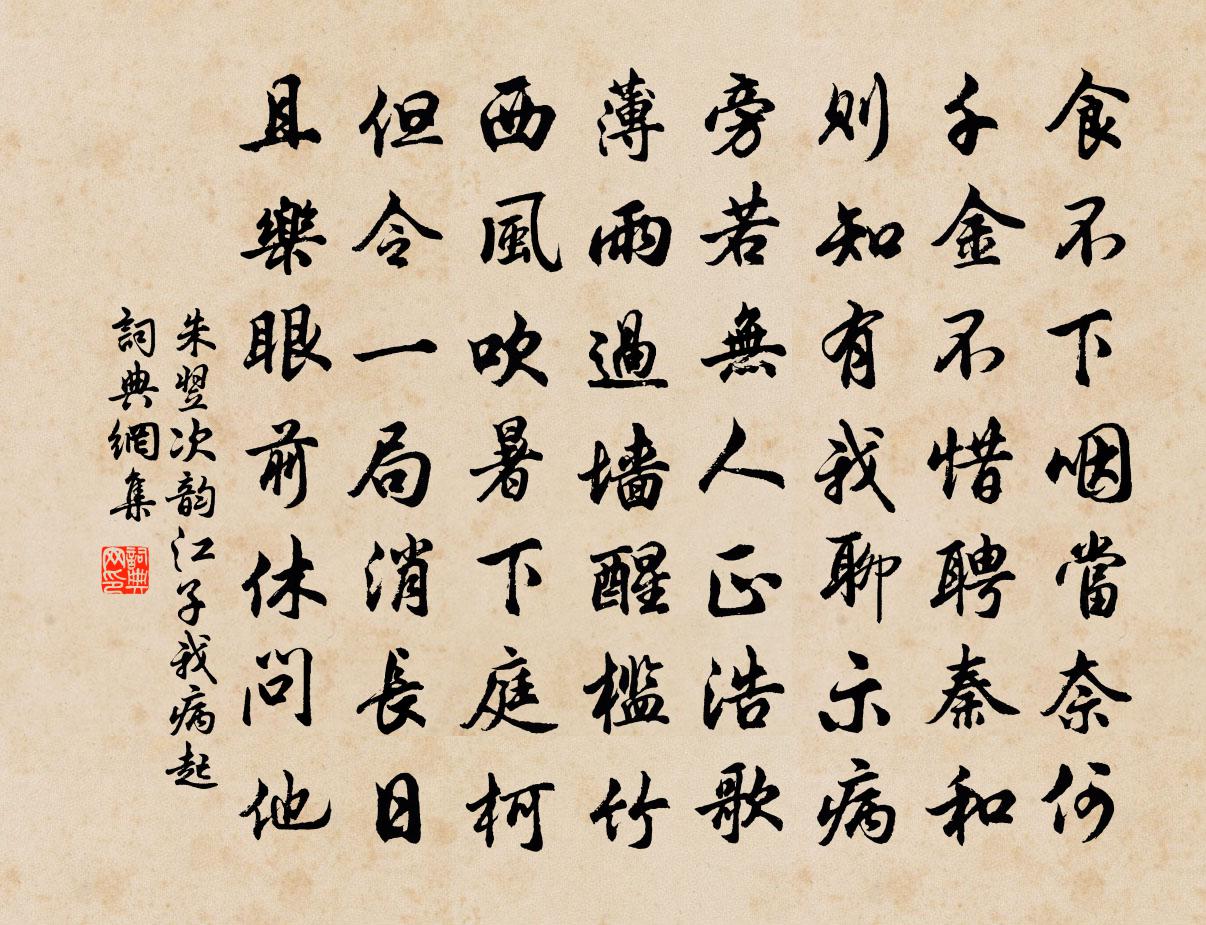 食不下咽當奈何
千金不惜聘秦和
則知有我聊示病
旁若無人正浩歌
薄雨過墻醒檻竹
西風吹暑下庭柯
但令一局消長日
且樂眼前休問他
朱翌次韵江子我病起
詞典網集
詞典网印